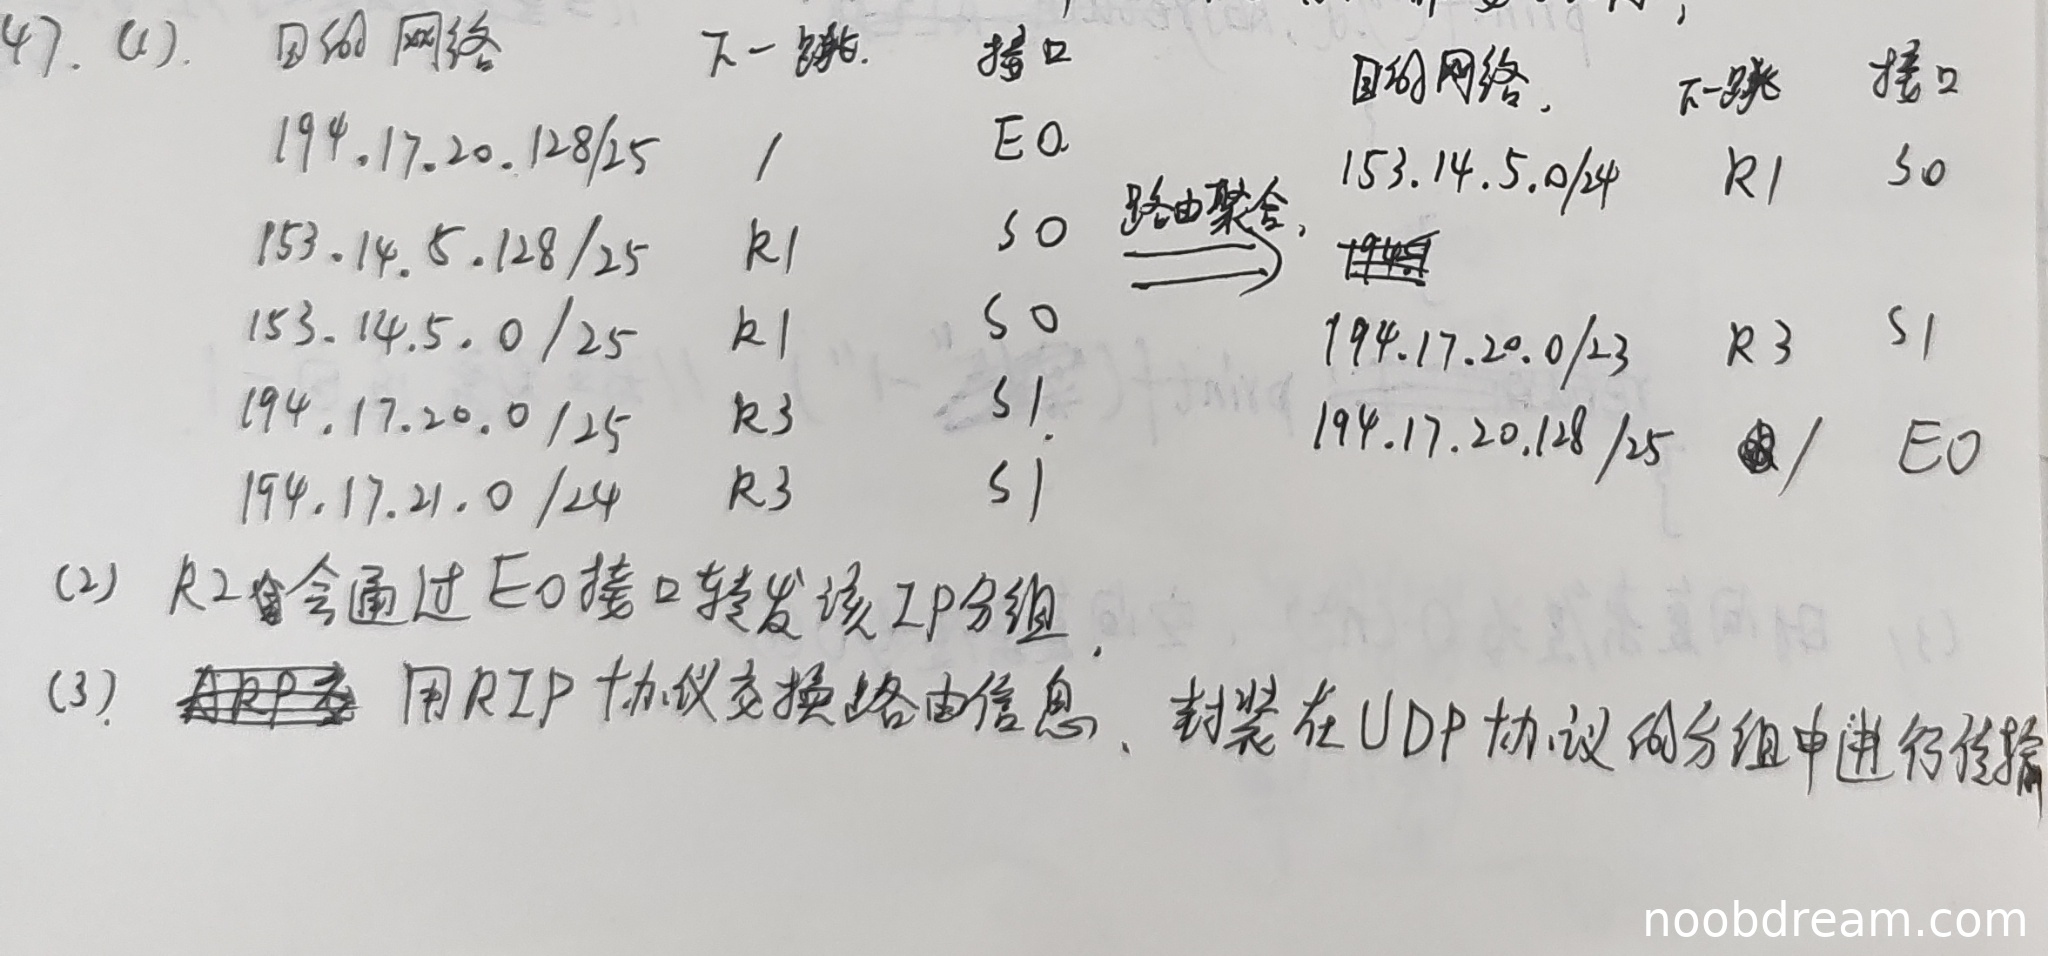 47. (1). 目的网络 下一跳. 接口
194.17.20.128/25 / E0
153.14.5.128/25 R1 S0
153.14.5.0/25 R1 S0
194.17.20.0/25 R3 S1.
194.17.21.0/24 R3 S1
路由聚合,
目的网络. 下一跳 接口
153.14.5.0/24 R1 S0
194.17.20.0/23 R3 S1
194.17.20.128/25 / E0
(2) R2会通过E0接口转发该IP分组.
(3). 用RIP协议交换路由信息、封装在UDP协议的分组中进行传输
noobdream.com